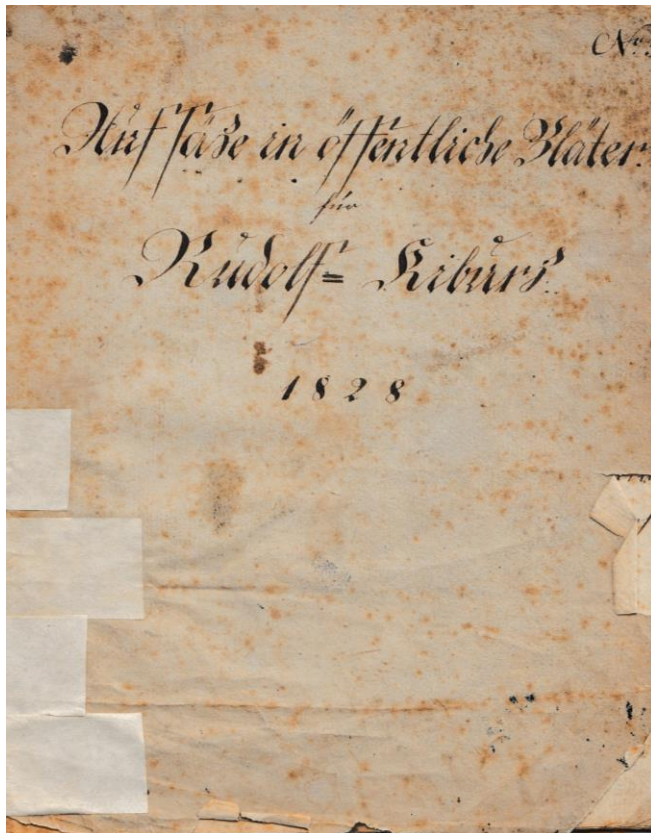 No.
Aufsäze in öffentliche Bläter.
für
Rudolf= Kiburz.
1828